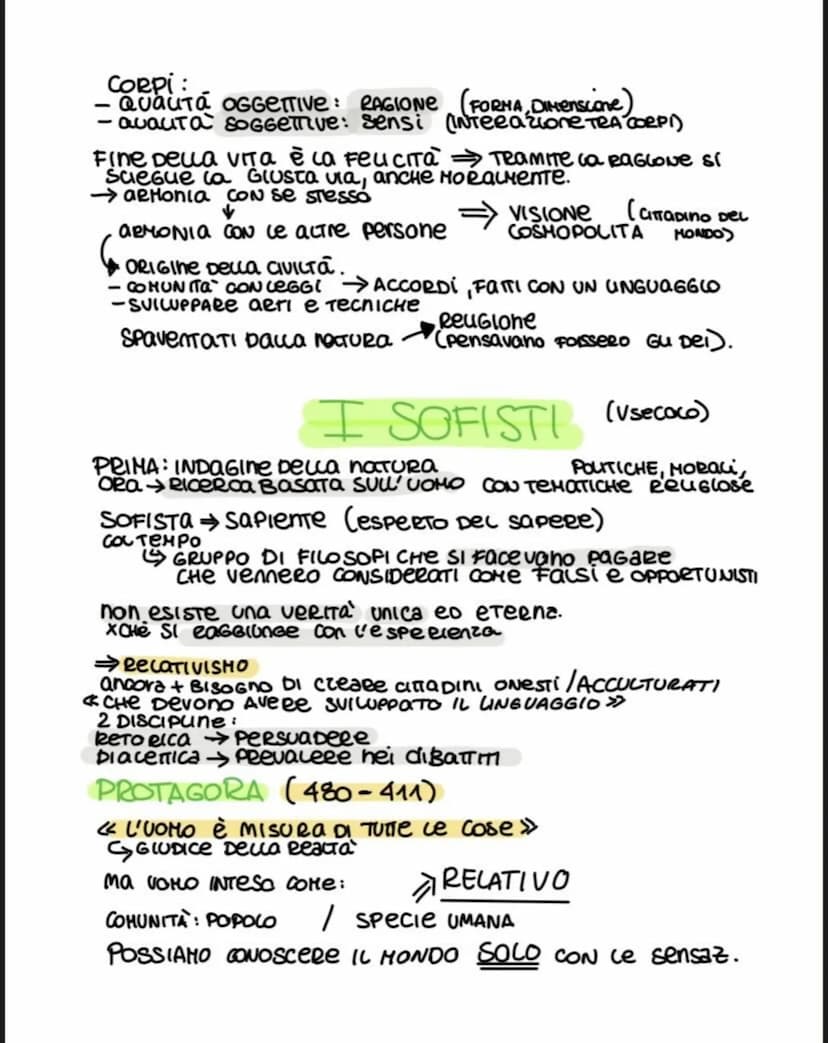 CORPI:
- QUALITÀ OGGETTIVE: RAGIONE (FORMA, DIMENSIONE)
- QUALITÀ SOGGETTIVE: SENSI (INTERAZIONE TRA CORPI)
FINE DELLA VITA È LA FELICITÀ ⇒ TRAMITE LA RAGIONE SI
SCIEGLIE LA GIUSTA VIA, ANCHE MORALMENTE.
→ ARMONIA CON SE STESSO
↓
ARMONIA CON LE ALTRE PERSONE ⇒ VISIONE COSMOPOLITA (CITTADINO DEL MONDO)
ORIGINE DELLA CIVILTÀ.
- COMUNITÀ CON LEGGI → ACCORDI, FATTI CON UN LINGUAGGIO
- SVILUPPARE ARTI E TECNICHE
SPAVENTATI DALLA NATURA → RELIGIONE
(PENSAVANO FOSSERO GLI DEI).
I SOFISTI (V SECOLO)
PRIMA: INDAGINE DELLA NATURA
ORA → RICERCA BASATA SULL'UOMO CON TEMATICHE POLITICHE, MORALI, RELIGIOSE
SOFISTA ⇒ SAPIENTE (ESPERTO DEL SAPERE)
COL TEMPO
↳ GRUPPO DI FILOSOFI CHE SI FACEVANO PAGARE
CHE VENNERO CONSIDERATI COME FALSI E OPPORTUNISTI
NON ESISTE UNA VERITÀ UNICA ED ETERNA.
XCHÉ SI RAGGIUNGE CON L'ESPERIENZA
⇒ RELATIVISMO
ANCORA + BISOGNO DI CREARE CITTADINI ONESTI / ACCULTURATI
« CHE DEVONO AVERE SVILUPPATO IL LINGUAGGIO »
2 DISCIPLINE:
RETORICA → PERSUADERE
DIALETTICA → PREVALERE NEI DIBATTITI
PROTAGORA (480 - 411)
« L'UOMO È MISURA DI TUTTE LE COSE »
↳ GIUDICE DELLA REALTÀ
MA UOMO INTESO COME: ⇗ RELATIVO
COMUNITÀ: POPOLO / SPECIE UMANA
POSSIAMO CONOSCERE IL MONDO SOLO CON LE SENSAZ.